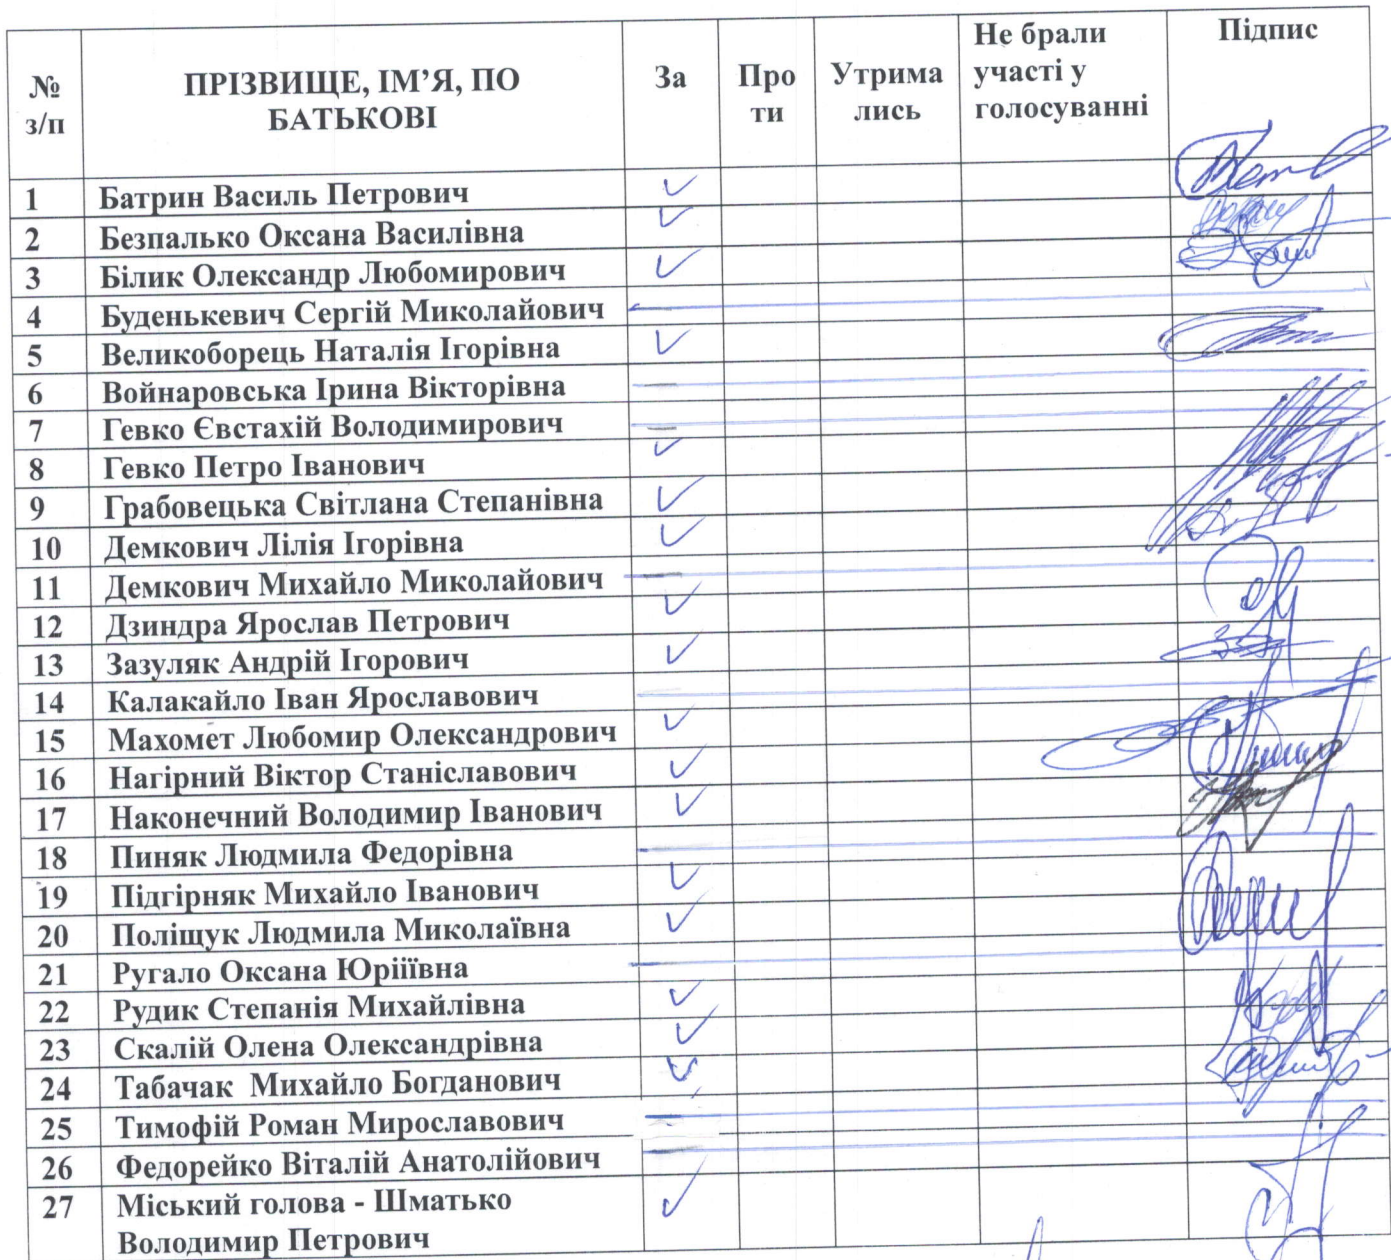 № з/п ПРІЗВИЩЕ, ІМ’Я, ПО БАТЬКОВІ За Про ти Утрима лись Не брали участі у голосуванні Підпис
1 Батрин Василь Петрович ✓
2 Безпалько Оксана Василівна ✓
3 Білик Олександр Любомирович ✓
4 Буденькевич Сергій Миколайович
5 Великоборець Наталія Ігорівна ✓
6 Войнаровська Ірина Вікторівна
7 Гевко Євстахій Володимирович
8 Гевко Петро Іванович ✓
9 Грабовецька Світлана Степанівна ✓
10 Демкович Лілія Ігорівна ✓
11 Демкович Михайло Миколайович
12 Дзиндра Ярослав Петрович ✓
13 Зазуляк Андрій Ігорович ✓
14 Калакайло Іван Ярославович
15 Махомет Любомир Олександрович ✓
16 Нагірний Віктор Станіславович ✓
17 Наконечний Володимир Іванович ✓
18 Пиняк Людмила Федорівна
19 Підгірняк Михайло Іванович ✓
20 Поліщук Людмила Миколаївна ✓
21 Ругало Оксана Юріїївна
22 Рудик Степанія Михайлівна ✓
23 Скалій Олена Олександрівна ✓
24 Табачак Михайло Богданович ✓
25 Тимофій Роман Мирославович
26 Федорейко Віталій Анатолійович
27 Міський голова - Шматько ✓
Володимир Петрович